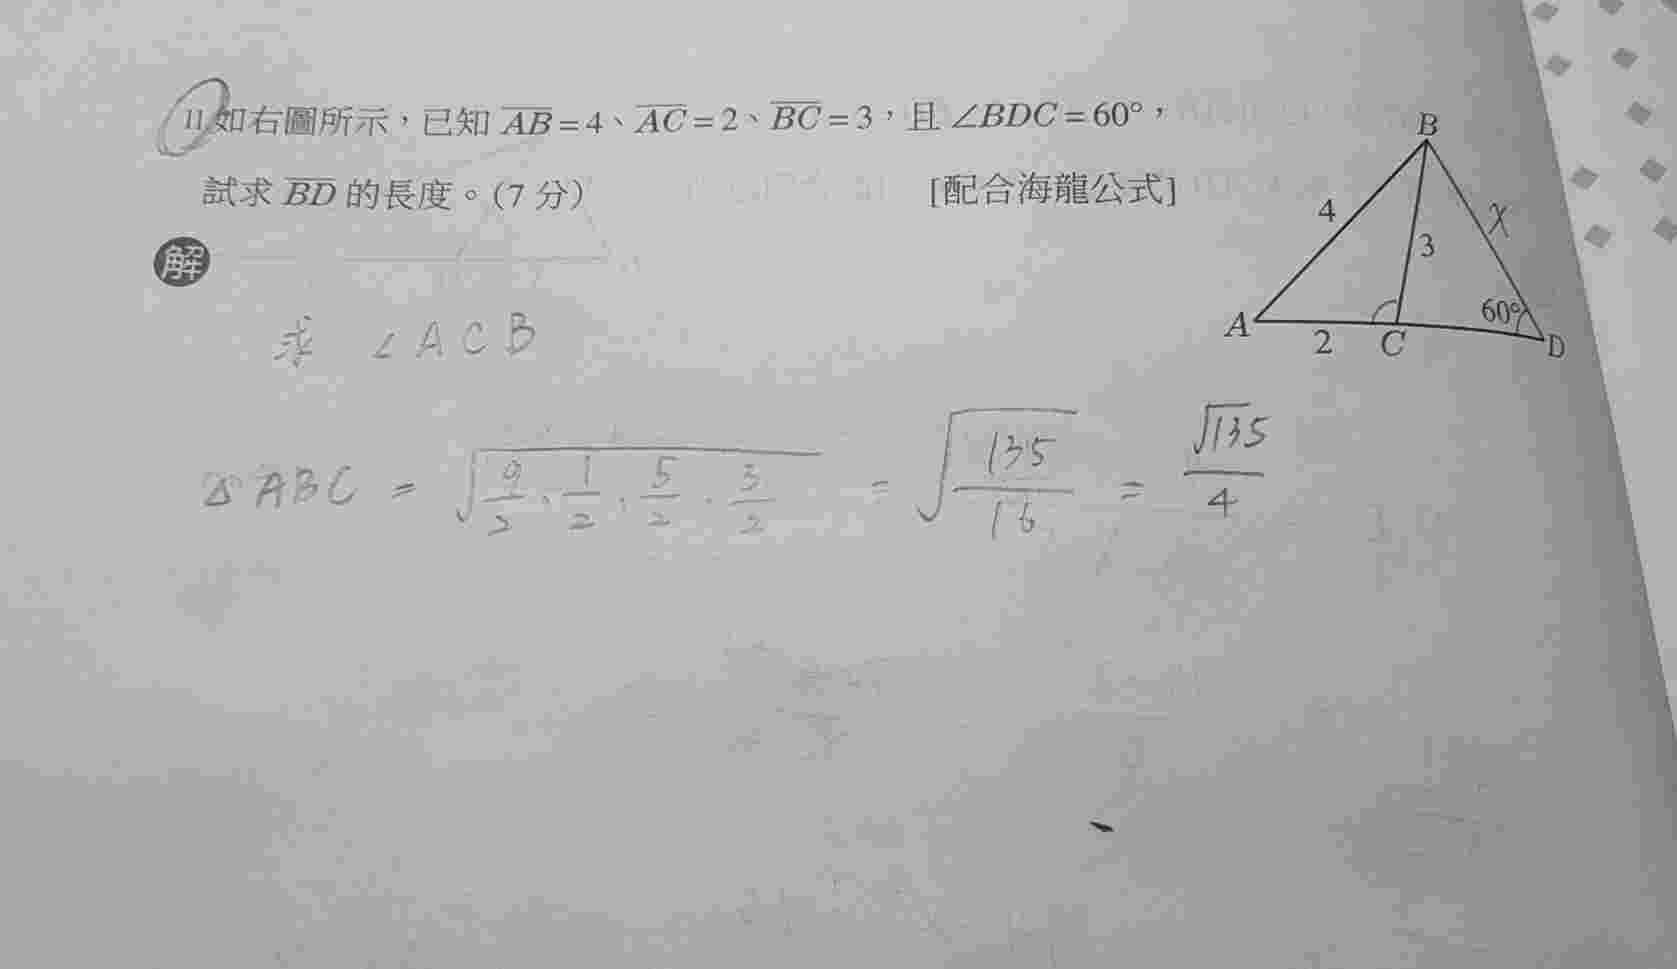 11 如右圖所示，已知 AB=4、AC=2、BC=3，且 ∠BDC=60°，
試求 BD 的長度。（7 分） [配合海龍公式]
B
4
3
x
60°
A
2
C
D
解
求 ∠ACB
△ABC = √(9/2 · 1/2 · 5/2 · 3/2) = √(135/16) = √135/4